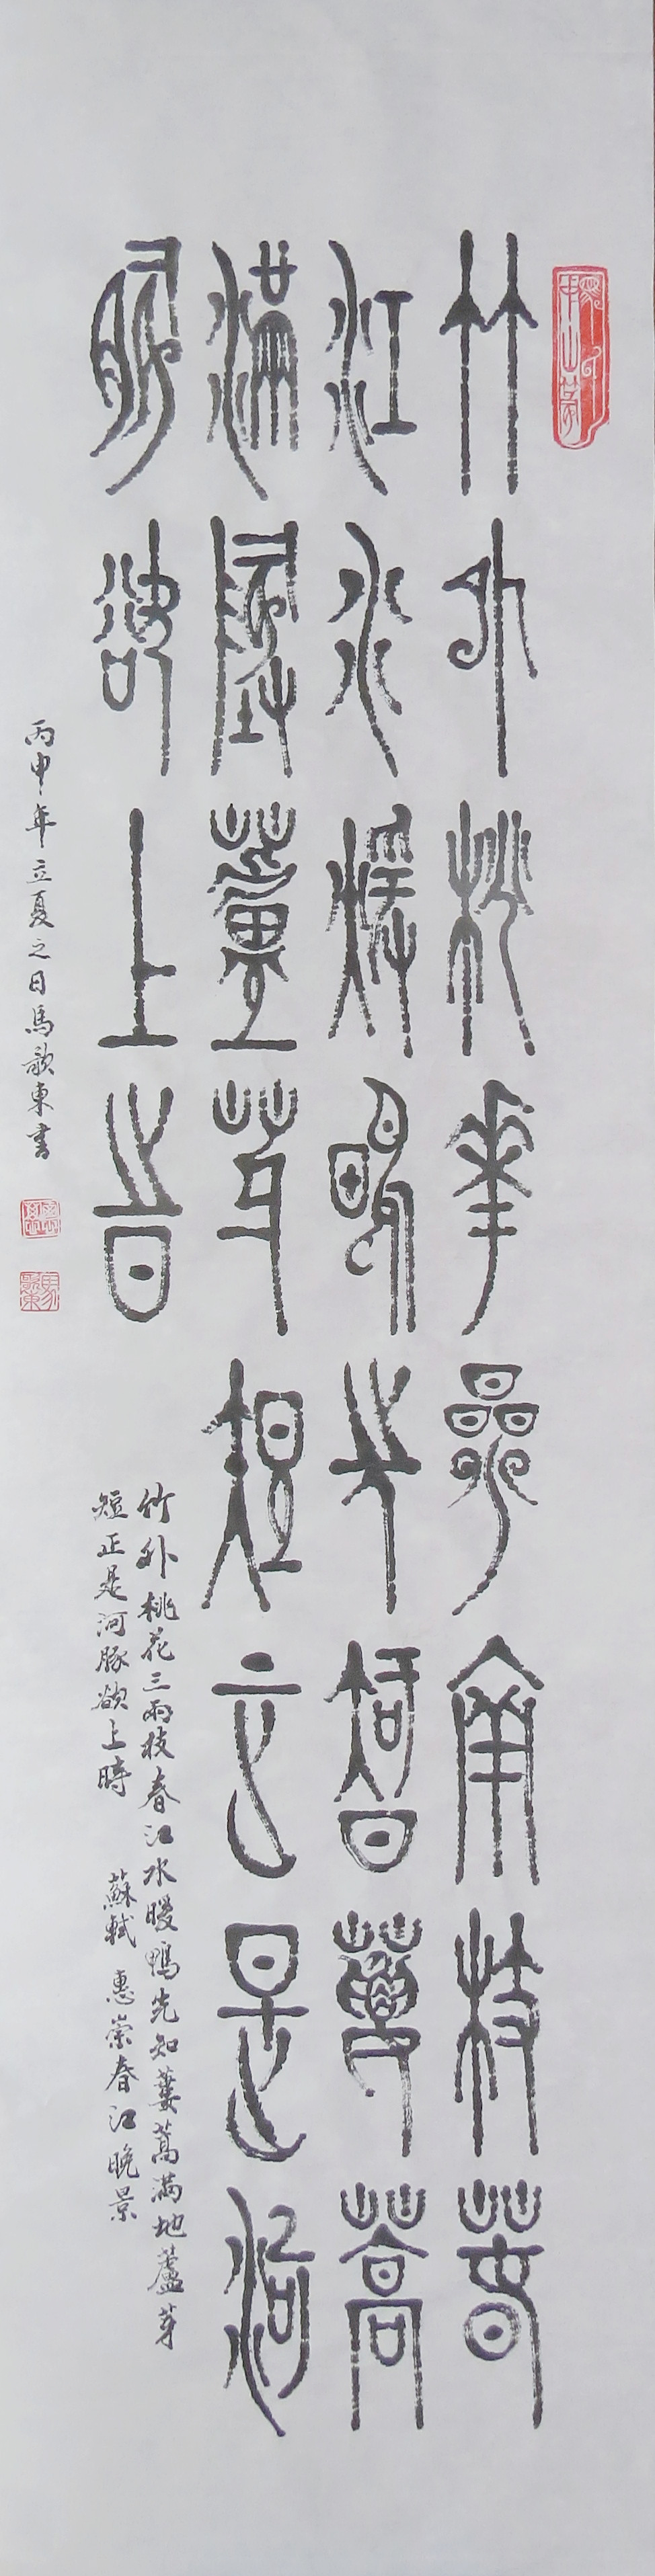 竹外桃華參兩枝春
江水煖鴨先智蔞蒿
滿地蘆芽短正是河
豚欲上時
竹外桃花三兩枝春江水暖鴨先知蔞蒿滿地蘆芽
短正是河豚欲上時 蘇軾 惠崇春江晚景
丙申年立夏之日馬歌東書
馬歌東